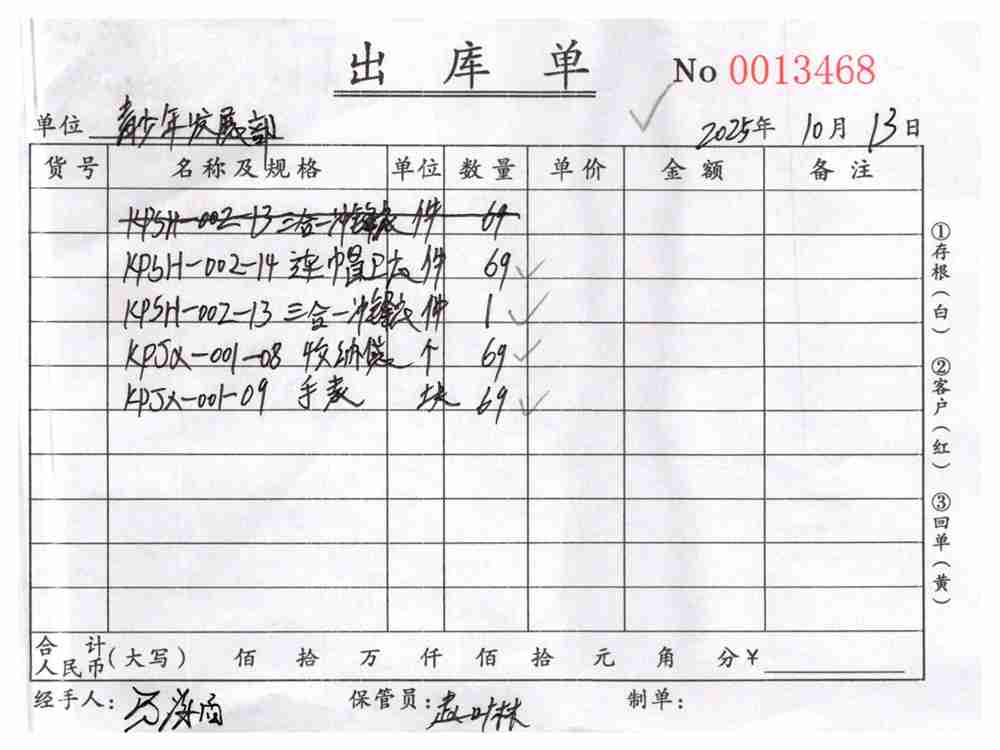 出库单
No 0013468
单位 青少年发展部
2025年 10月 13日
货号 名称及规格 单位 数量 单价 金额 备注
KPSH-002-13 三合一冲锋衣 件 69
KPSH-002-14 连帽卫衣 件 69
KPSH-002-13 三合一冲锋衣 件 1
KPJX-001-08 收纳袋 个 69
KPJX-001-09 手表 块 69
合计人民币(大写) 佰 拾 万 仟 佰 拾 元 角 分¥
经手人: 保管员: 制单:
①存根(白) ②客户(红) ③回单(黄)